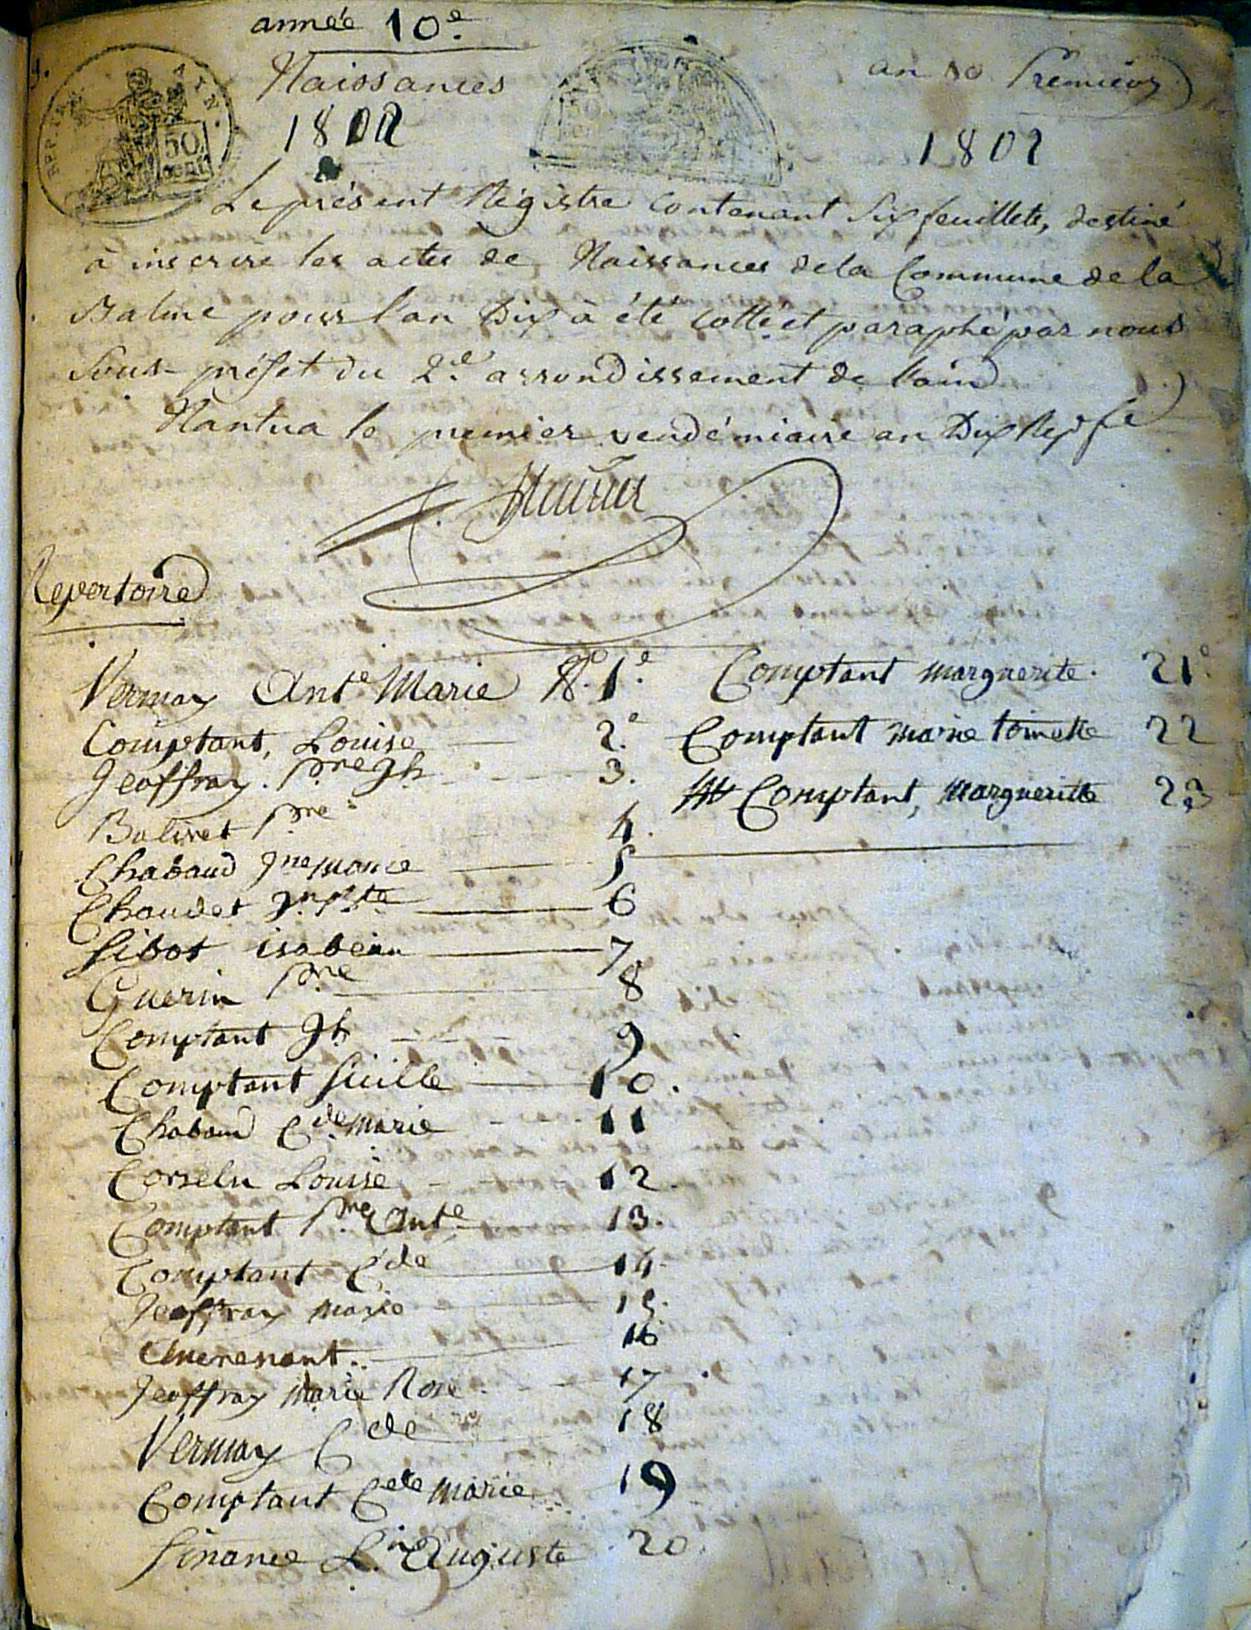 année 10e.
Naissances
1802
an 10 Premier
1802
AIN.
50
CENT
Le présent Régistre Contenant Six feuillets, destiné
à inscrire les actes de Naissances de la Commune de la
Balme pour l'an Dix à été Cotté et paraphé par nous
Sous-préfet du 2e. arrondissement de l'ain
Nantua le premier vendémiaire an Dix
Repertoire
Vermay Ante Marie No. 1e.
Comptant, Louise 2e.
Geoffray. Prre Jh 3.
Balivet Prre 4.
Chabaud Jne Marie 5
Chaudet Jn Pste 6
Sibot isabeau 7
Guerin Prre 8
Comptant Jh 9
Comptant 10.
Chabaud Cde Marie 11
Louise 12.
Comptant Prre Ante 13.
Comptant Cde 14.
Geoffray Marie 15.
16
Geoffray Marie Rose 17.
Vermay Cde 18
Comptant Cde Marie 19
Auguste 20.
Comptant Marguerite. 21e.
Comptant Marie toinette 22
Comptant, Margueritte 23